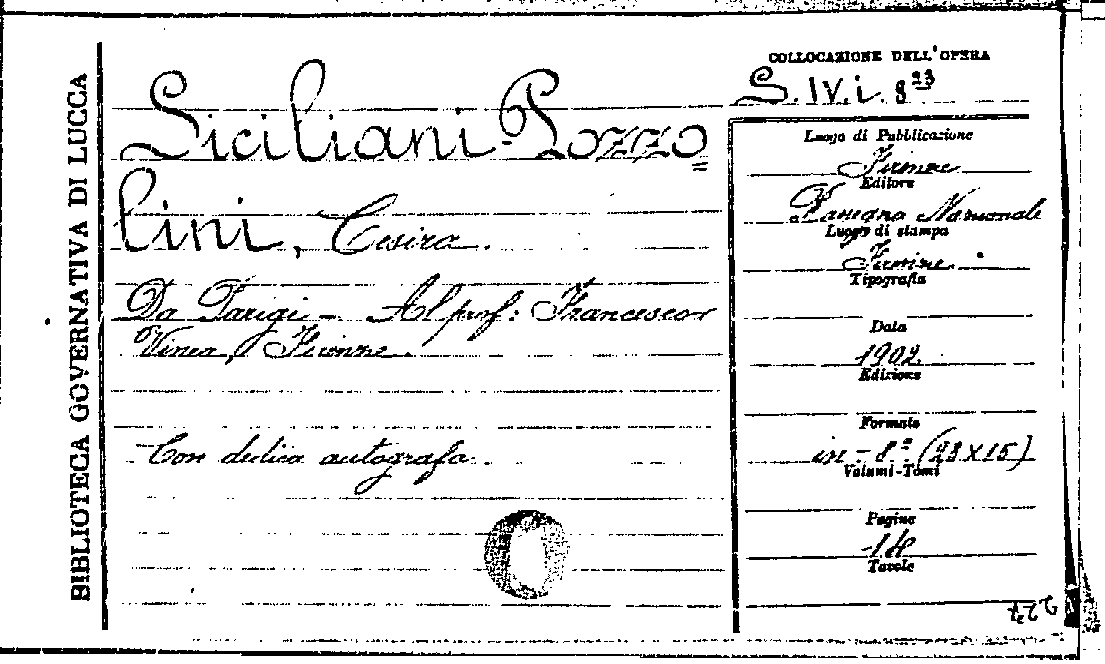 BIBLIOTECA GOVERNATIVA DI LUCCA
Siciliani-Pozzo=
lini, Cesira.
Da Parigi - Al prof: Francesco
Vinea, Firenze.
Con dedica autografa.
COLLOCAZIONE DELL'OPERA
S. IV. i. 8 23
Luogo di Pubblicazione
Firenze
Editore
Rassegna Nazionale
Luogo di stampa
Firenze.
Tipografia
Data
1902.
Edizione
Formato
in-8° (23x15)
Volumi-Tomi
Pagine
Tavole